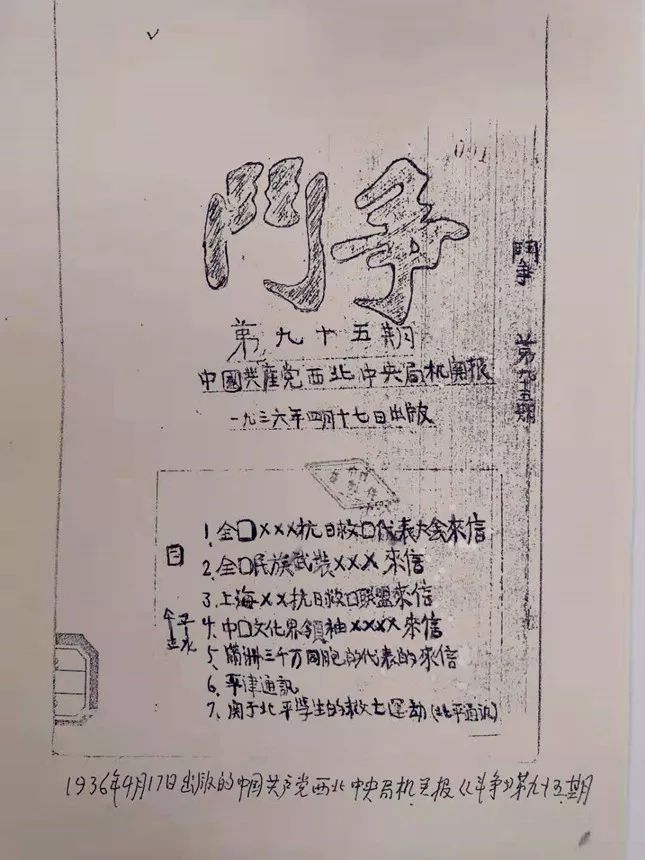 鬥争
第九十五期
中國共産党西北中央局机関报
一九三六年四月十七日出版
鬥争 第九十五期
目
1. 全囗×××抗日救囗代表大会來信
2. 全囗民族武装×××來信
3. 上海××抗日救囗联盟來信
4. 中囗文化界領袖××××來信
5. 满洲三千万同胞的代表的來信
6. 平津通訊
7. 関于北平學生的救亡運动(北平通訊)
1936年4月17日出版的中国共产党西北中央局机关报《斗争》第九十五期